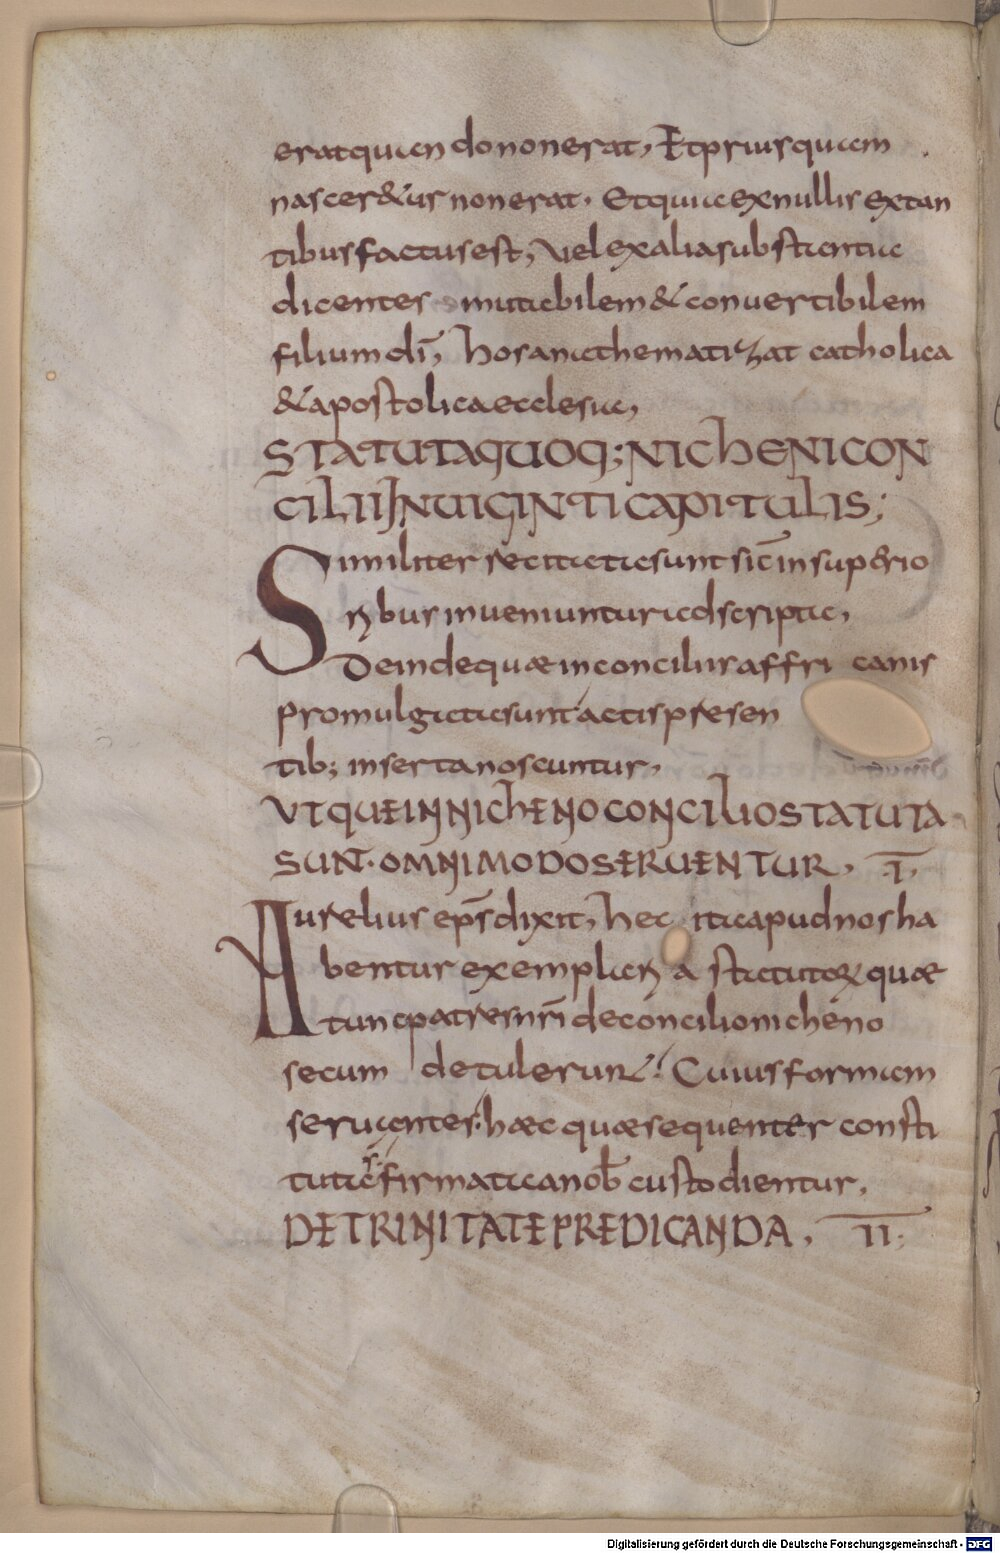 erat quando non erat, Et prius quam
nascer&ur non erat. Et quia ex nullis extan
tibus factus est, vel ex alia substantia
dicentes mutabilem & convertibilem
filium dī, hos anathematizat catholica
& apostolica ecclesia,
STATUTA QUOQ; NICHENI CON
CILII IN VIGINTI CAPITULIS;
Similiter recitata sunt sic̄ in superio
ribus inveniuntur adscripta,
Deinde quæ in conciliis affri canis
promulgata sunt actis presen
tib; inserta noscuntur,
UT QUE IN NICHENO CONCILIO STATUTA
SUNT. OMNIMODO SERVENTUR, .I.
Aurelius ep̄s dixit, hec ita apud nos ha
bentur exemplaria statutoꝝ quæ
tunc patres nr̄i de concilio nicheno
secum detulerunt. Cuius formam
servantes. hæc quæ sequenter consti
tuta firmata a nob̄ custodientur,
DE TRINITATE PREDICANDA, II.
Digitalisierung gefördert durch die Deutsche Forschungsgemeinschaft - DFG